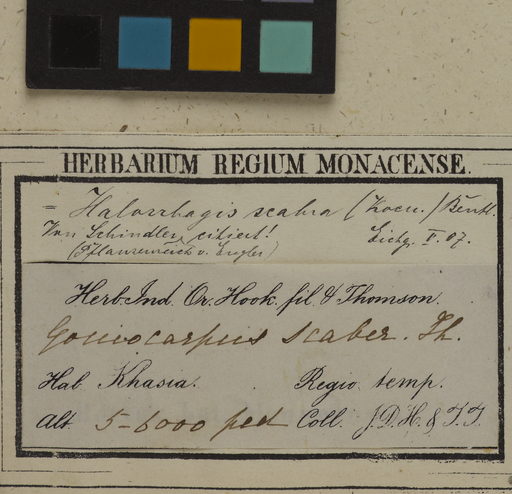 HERBARIUM REGIUM MONACENSE.
= Halorrhagis scabra (Koen.) Benth.
Von Schindler citiert! Lichg. V. 07.
(Pflanzenreich v. Engler)
Herb. Ind. Or. Hook. fil. & Thomson.
Goniocarpus scaber. Th.
Hab. Khasia. Regio temp.
Alt. 5-6000 ped Coll. J.D.H. & T.T.